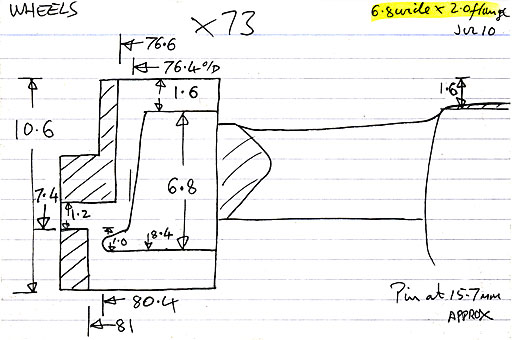 WHEELS
×73
6.8 wide × 2.0 flange
JUL 10
76.6
76.4 O/D
1.6
1.6
10.6
7.4
1.2
6.8
1.0
8.4
80.4
81
Pin at 15.7mm
APPROX